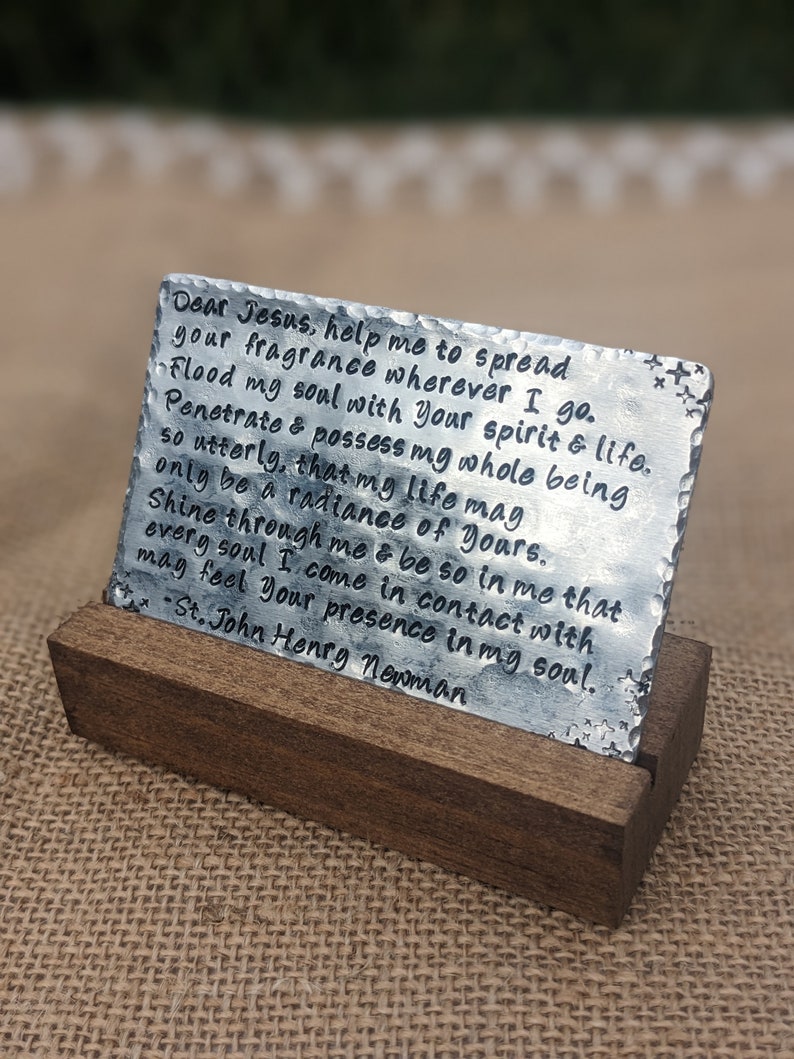 Dear Jesus, help me to spread
your fragrance wherever I go.
Flood my soul with Your spirit & life.
Penetrate & possess my whole being
so utterly, that my life may
only be a radiance of Yours.
Shine through me & be so in me that
every soul I come in contact with
may feel Your presence in my soul.
-St. John Henry Newman